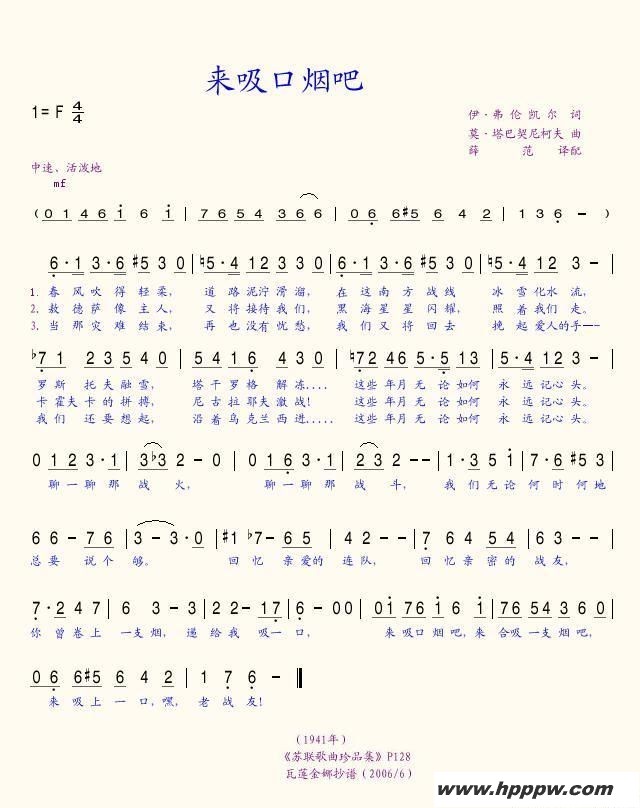 来吸口烟吧
1= F 4/4
伊·弗伦凯尔 词
莫·塔巴契尼柯夫 曲
薛 范 译配
中速、活泼地
mf
( 0 1 4 6 i 6 i | 7 6 5 4 3 6 6 | 0 6 6 #5 6 4 2 | 1 3 6 – )
6 · 1 3 · 6 #5 3 0 | ♮5 · 4 1 2 3 0 | 6 · 1 3 · 6 #5 3 0 | ♮5 · 4 1 2 3 – |
1. 春风吹得轻柔, 道路泥泞滑溜, 在这南方战线 冰雪化水流,
2. 敖德萨像主人, 又将接待我们, 黑海星星闪耀, 照着我们走。
3. 当那灾难结束, 再也没有忧愁, 我们又将回去 挽起爱人的手——
♭7 1 2 3 5 4 0 | 5 4 0 1 2 3 0 | ♮7 2 4 6 5 · 5 | 1 2 3 – |
罗斯托夫融雪, 塔干罗格解冻.... 这些年月无论如何 永远记心头。
卡霍夫卡的拼搏, 尼古拉耶夫激战! 这些年月无论如何 永远记心头。
我们还要想起, 沿着乌克兰西进..... 这些年月无论如何 永远记心头。
0 1 2 3 · 1 | 3 ♭3 2 – 0 | 0 1 6 3 · 1 | 2 3 2 – | 1 · 3 5 i | 7 · 6 #5 3
聊一聊那战火, 聊一聊那战斗, 我们无论何时何地
6 6 – 7 6 | 3 – 3 · 0 | #1 ♭7 – 6 5 | 4 2 – – | 7 6 4 5 4 | 6 3 – –
总要说个够。 回忆亲爱的连队, 回忆亲密的战友,
7 · 2 4 7 | 6 3 – 3 | 2 2 – 1 7 | 6 – – 0 0 | 0 i 7 6 i 6 i | 7 6 5 4 3 6 0
你曾卷上一支烟, 递给我吸一口, 来吸口烟吧,来合吸一支烟吧,
0 6 6 #5 6 4 2 | 1 7 6 –
来吸上一口,嘿, 老战友!
(1941年)
《苏联歌曲珍品集》P128
瓦莲金娜抄谱 (2006/6)
www.hpppw.com